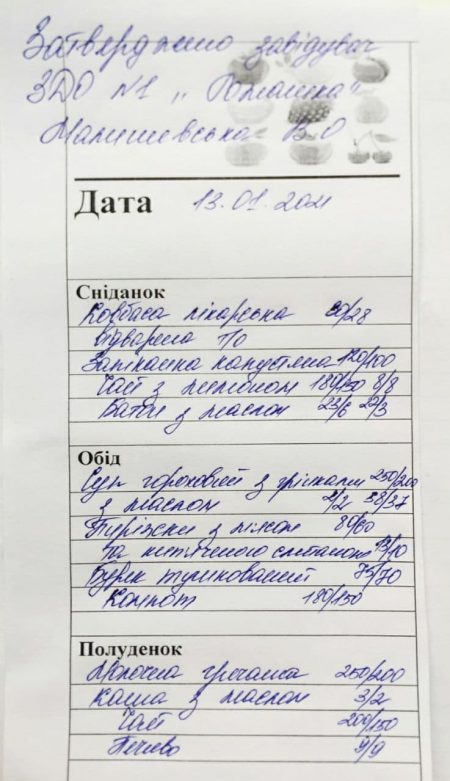 Затверджено завідувач
ЗДО №1 „Ромашка"
Малишевська В.О
Дата 13.01.2021
Сніданок
Ковбаса лікарська 30/28
відварена Т/О
Запіканка капустяна 120/100
Чай з лимоном 180/150 8/8
Батон з маслом 23/6 22/3
Обід
Суп гороховий з грінками 250/200
з маслом 2/2 38/37
Пиріжки з м'ясом 80/60
та кип'яченого сметаною
Буряк тушкований 75/70
Компот 180/150
Полуденок
Молочна гречана 250/200
каша з маслом 3/2
Чай 200/150
Печиво 9/9